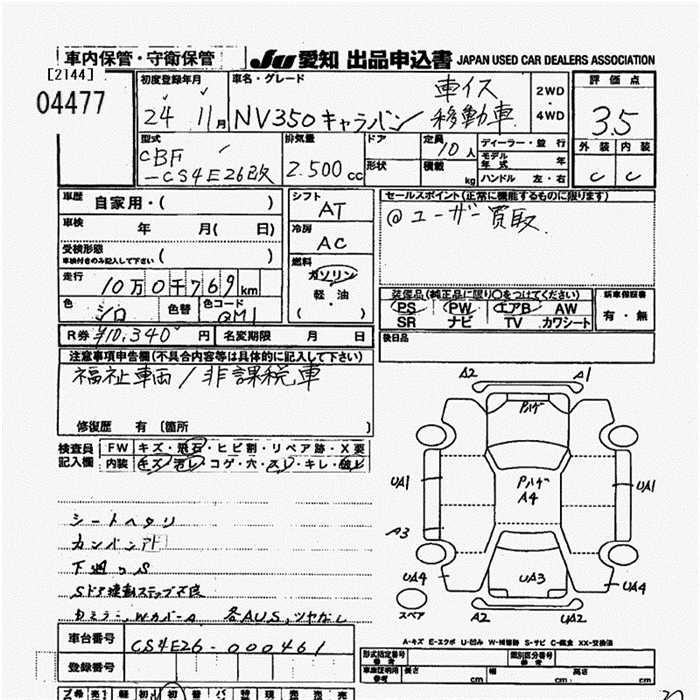 車内保管・守衛保管 JU 愛知 出品申込書 JAPAN USED CAR DEALERS ASSOCIATION
[2144]
04477
初度登録年月
24 11月
車名・グレード
NV350キャラバン
車イス
移動車
2WD
・
4WD
評価点
3.5
外装 内装
C C
型式
CBF
-CS4E26改
排気量
2.500cc
ドア
形状
定員
10人
積載
kg
ディーラー・並行
モデル年式 年
ハンドル 左・右
車歴 自家用・( )
車検 年 月( 日)
受検形態
車検付きのみ記入して下さい ( )
走行 10万0千769km
色 シロ 色替 色コード QM1
R券 ¥10,340円 名変期限 月 日
シフト
AT
冷房
AC
燃料
ガソリン
軽・油
( )
セールスポイント(正常に機能するものに限ります)
@ユーザー買取
装備品(純正品に限り○をつけてください)
PS PW エアB AW
SR ナビ TV カワシート
新車保証書
有・無
後日品
注意事項申告欄(不具合内容等は具体的に記入して下さい)
福祉車両/非課税車
修復歴 有 〔箇所 〕
検査員
記入欄
FW キズ・飛石・ヒビ割・リペア跡・X要
内装 キズ・汚レ・コゲ・穴・スレ・キレ・破レ
シートヘタリ
カンバンアト
下廻りS
Sドア連動ステップ不良
各AUS,ツヤなし
A2 A1
Pハゲ
Pハゲ
A4
UA1 UA1
A3
UA4 UA3 UA4
スペア A2 UA2
A-キズ E-エクボ U-凹み W-補修跡 S-サビ C-腐食 XX-交換済
車台番号 CS4E26-000461
登録番号
型式指定番号 類別区分番号
長さ cm 幅 cm 高さ cm